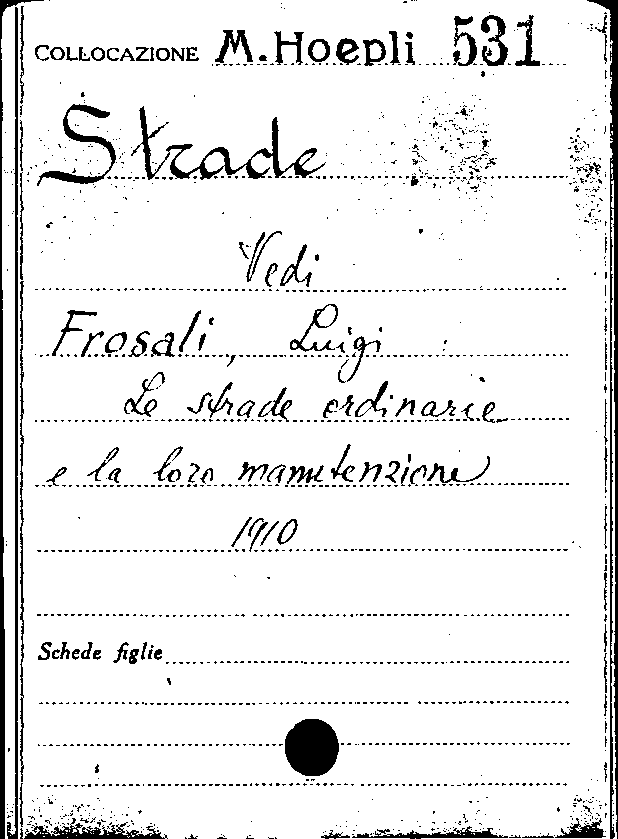 COLLOCAZIONE M.Hoepli 531
Strade
Vedi
Frosali, Luigi :
Le strade ordinarie
e la loro manutenzione
1910
Schede figlie